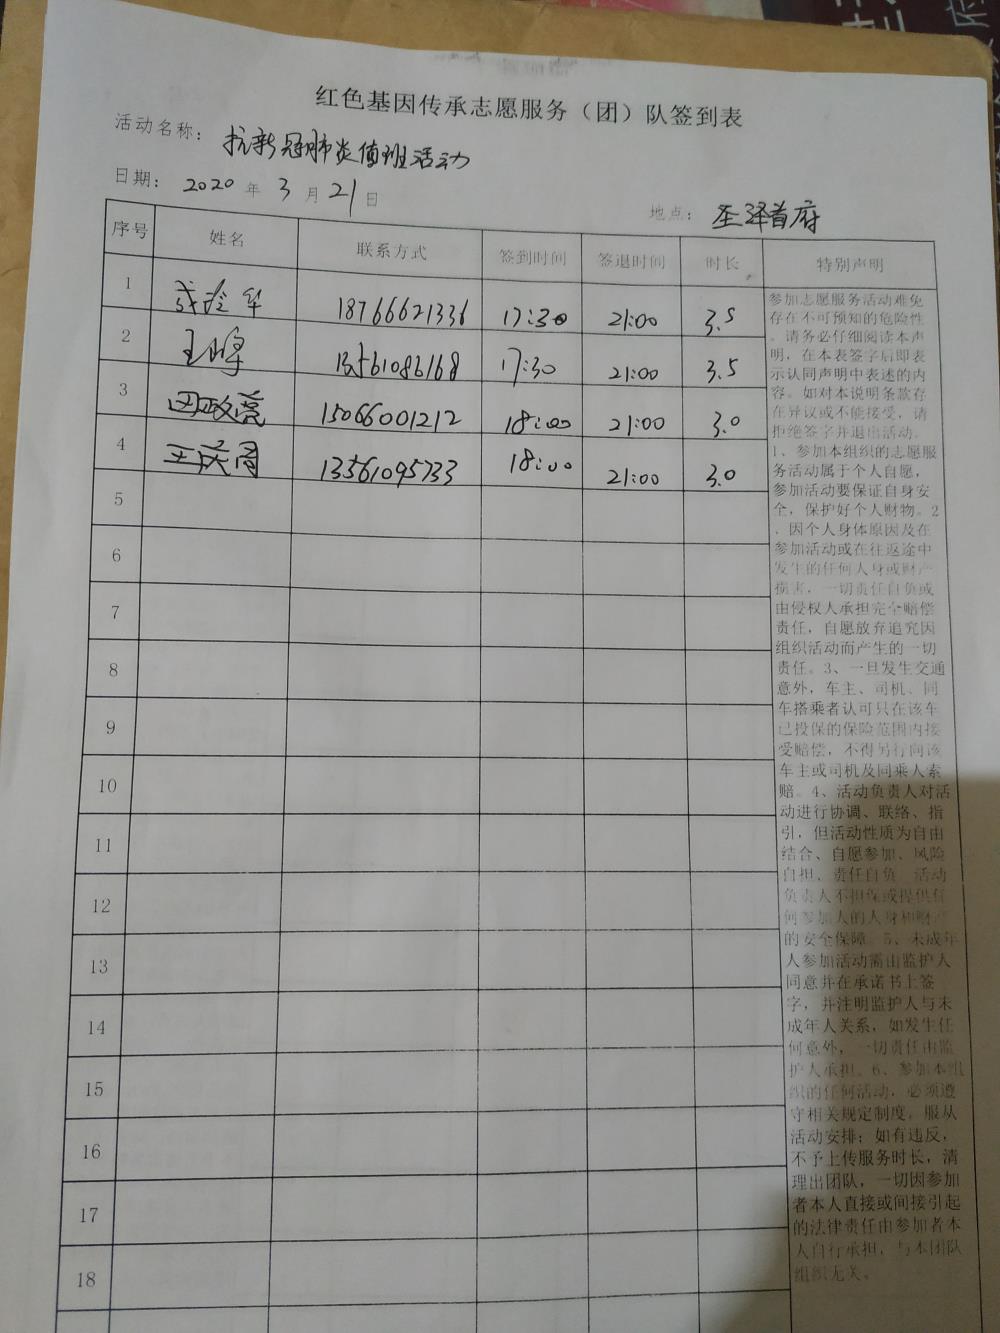 红色基因传承志愿服务（团）队签到表
活动名称： 抗新冠肺炎值班活动
日期： 2020 年 3 月 21 日
地点： 圣泽首府
序号 姓名 联系方式 签到时间 签退时间 时长 特别声明
1 18766621336 17:30 21:00 3.5
2 王峰 13561086168 17:30 21:00 3.5
3 田政亮 15066001212 18:00 21:00 3.0
4 王庆周 13561095733 18:00 21:00 3.0
5
6
7
8
9
10
11
12
13
14
15
16
17
18
参加志愿服务活动难免
存在不可预知的危险性
。请务必仔细阅读本声
明，在本表签字后即表
示认同声明中表述的内
容。如对本说明条款存
在异议或不能接受，请
拒绝签字并退出活动。
1、参加本组织的志愿服
务活动属于个人自愿，
参加活动要保证自身安
全，保护好个人财物。2
、因个人身体原因及在
参加活动或在往返途中
发生的任何人身或财产
损害，一切责任自负或
由侵权人承担完全赔偿
责任，自愿放弃追究因
组织活动而产生的一切
责任。3、一旦发生交通
意外，车主、司机、同
车搭乘者认可只在该车
已投保的保险范围内接
受赔偿，不得另行向该
车主或司机及同乘人索
赔。4、活动负责人对活
动进行协调、联络、指
引，但活动性质为自由
结合、自愿参加、风险
自担、责任自负 活动
负责人不担保或提供任
何参加人的人身和财产
的安全保障。5、未成年
人参加活动需由监护人
同意并在承诺书上签
字，并注明监护人与未
成年人关系，如发生任
何意外，一切责任由监
护人承担。6、参加本组
织的任何活动，必须遵
守相关规定制度，服从
活动安排；如有违反，
不予上传服务时长，清
理出团队，一切因参加
者本人直接或间接引起
的法律责任由参加者本
人自行承担，与本团队
组织无关。